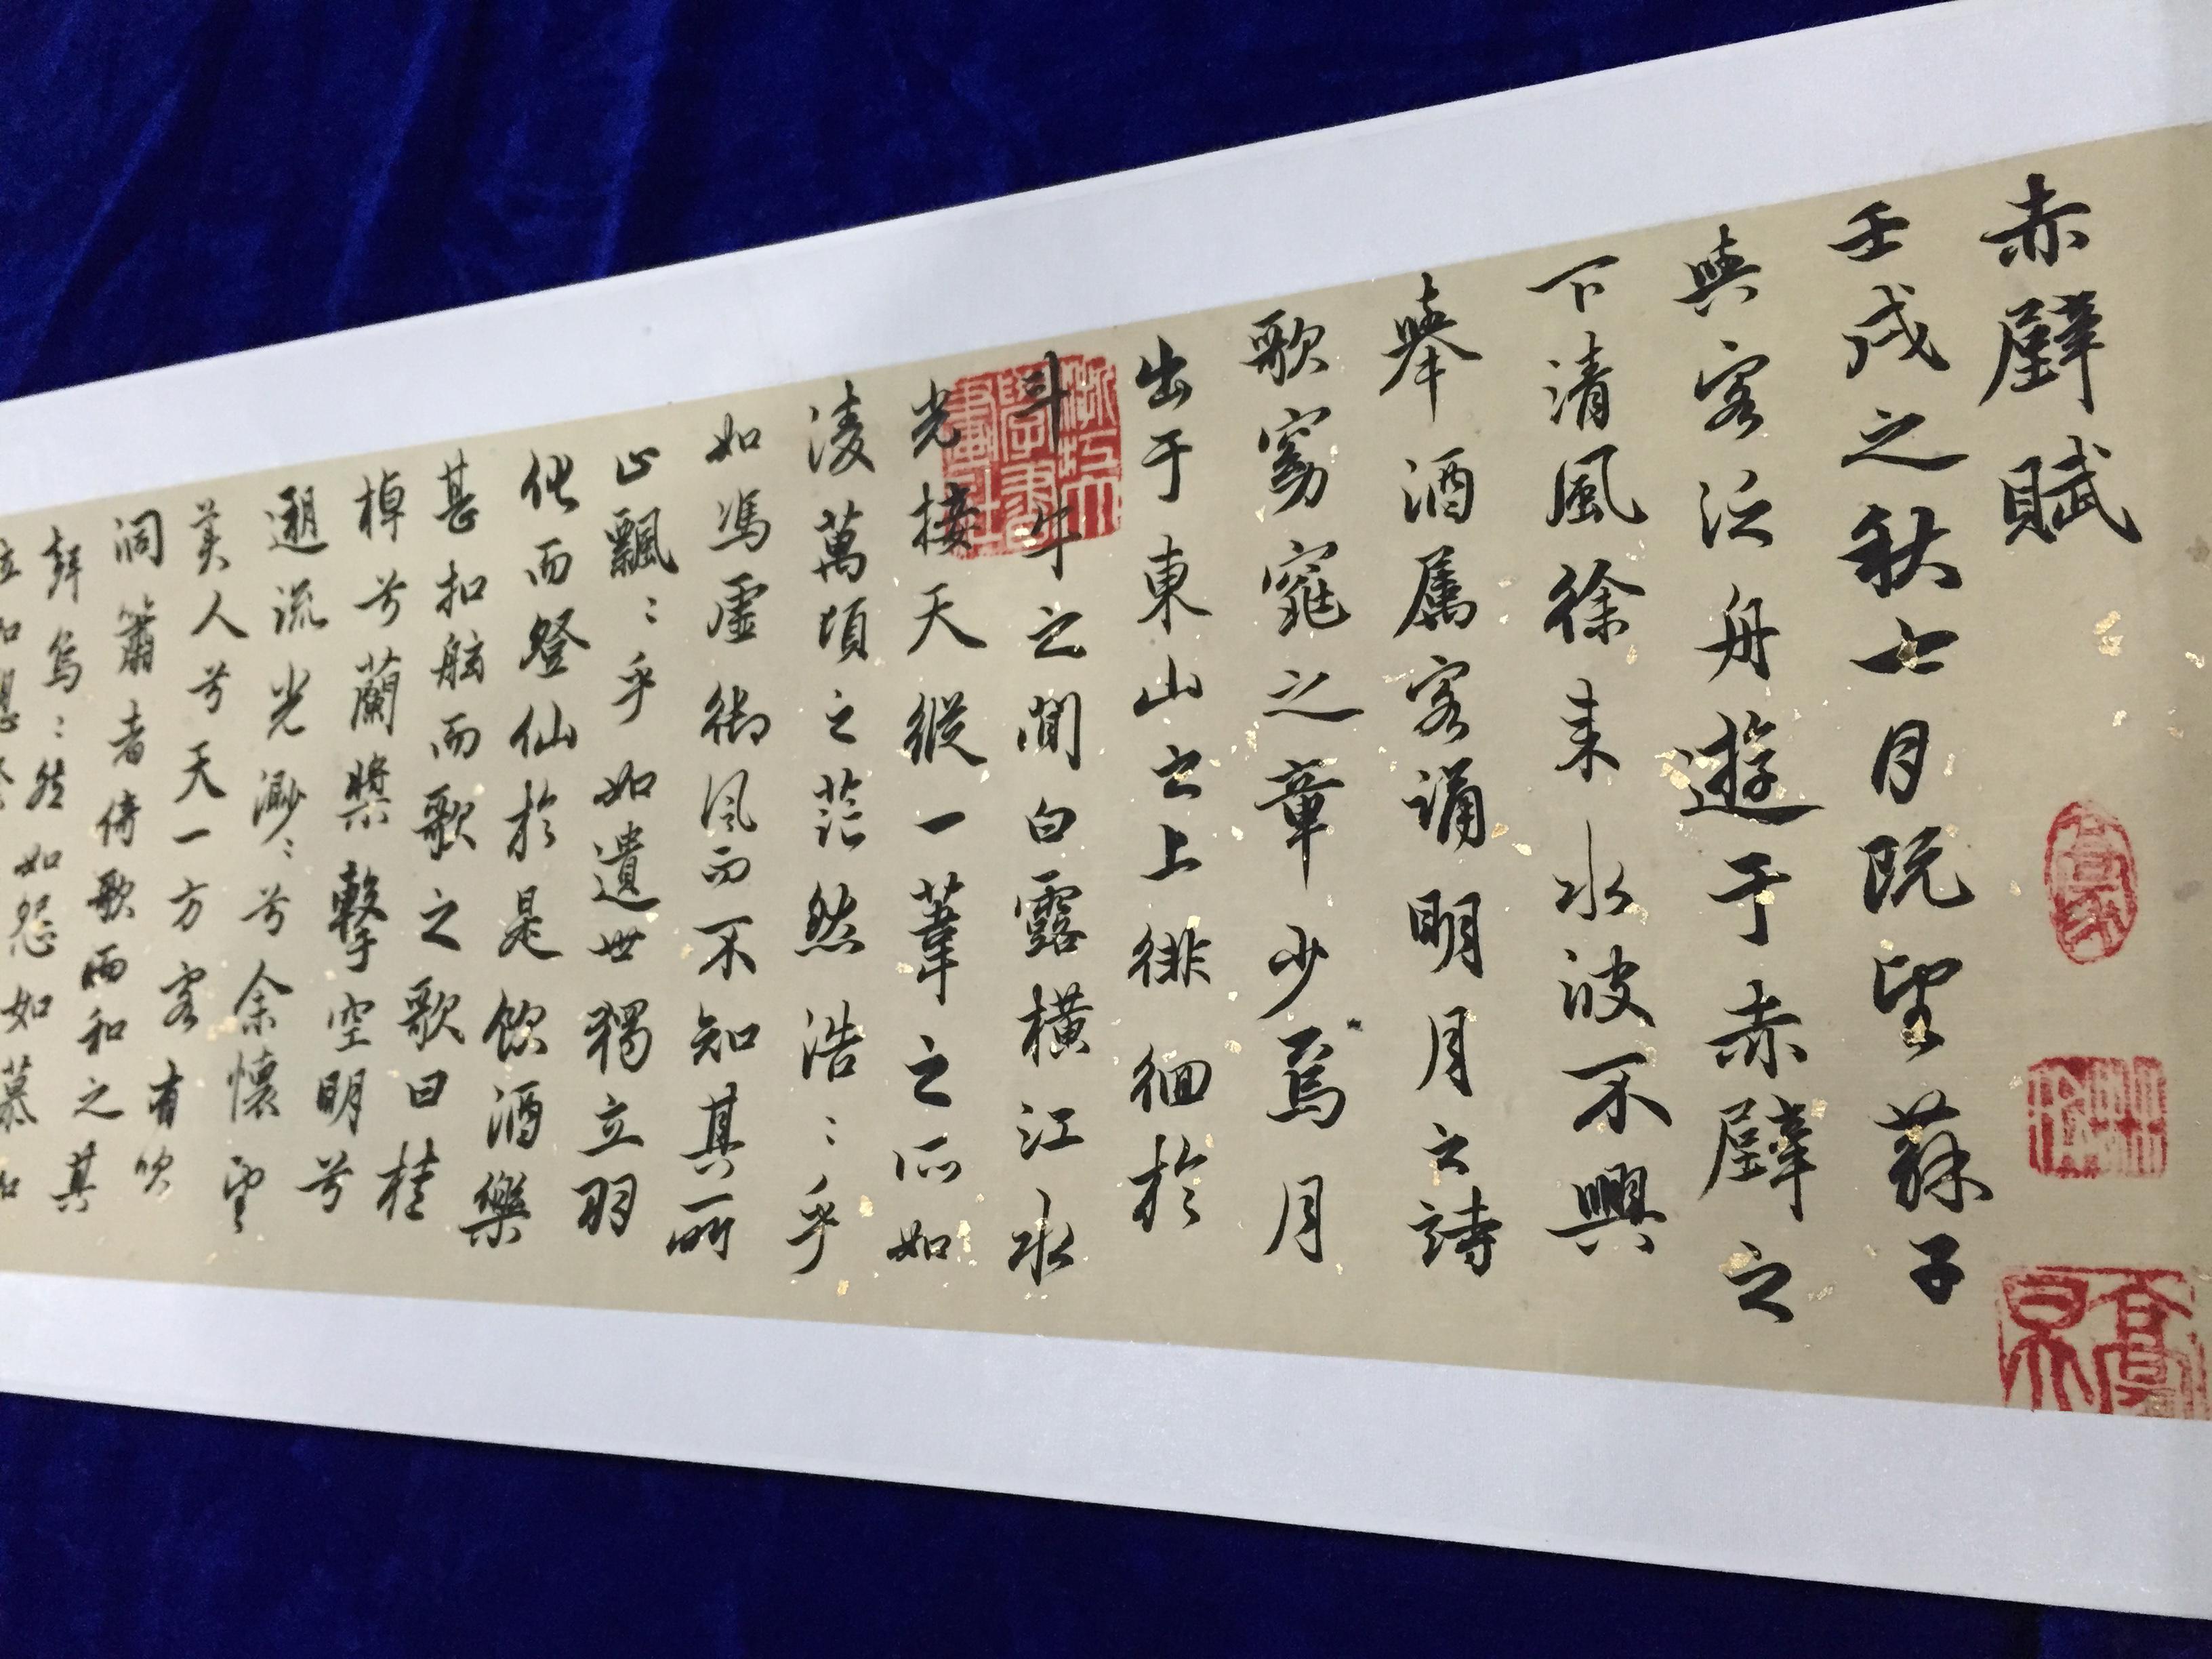 赤壁賦
壬戌之秋七月既望蘇子
與客泛舟遊于赤壁之
下清風徐来水波不興
舉酒属客誦明月之詩
歌窈窕之章少焉月
出于東山之上徘徊於
斗牛之間白露橫江水
光接天縱一葦之所如
淩萬頃之茫然浩〻乎
如馮虛御風而不知其所
止飄〻乎如遺世獨立羽
化而登仙於是飲酒樂
甚扣舷而歌之歌曰桂
棹兮蘭槳擊空明兮
遡流光渺〻兮余懷望
美人兮天一方客有吹
洞簫者倚歌而和之其
聲烏〻然如怨如慕